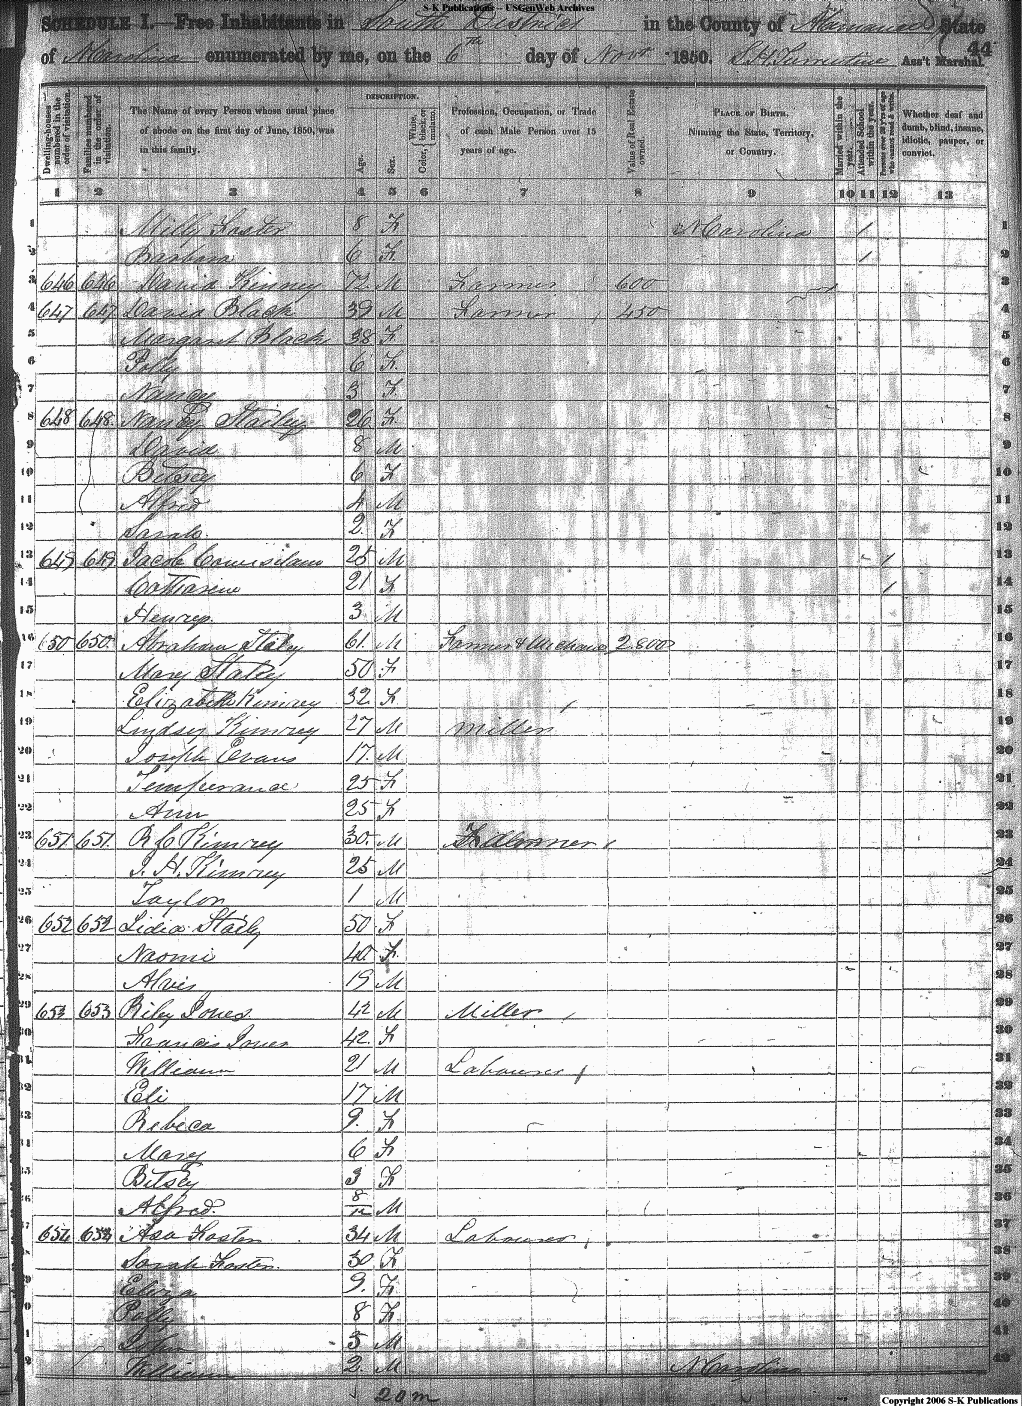 S-K Publications -- USGenWeb Archives
SCHEDULE I.—Free Inhabitants in South District in the County of Alamance State
of N Carolina enumerated by me, on the 6th day of Novr 1850. Ass't Marshal.
44
Dwelling-houses numbered in the order of visitation.
Families numbered in the order of visitation.
The Name of every Person whose usual place of abode on the first day of June, 1850, was in this family.
DESCRIPTION.
Age.
Sex.
Color, White, black, or mulatto.
Profession, Occupation, or Trade of each Male Person over 15 years of age.
Value of Real Estate owned.
PLACE OF BIRTH. Naming the State, Territory, or Country.
Married within the year.
Attended School within the year.
Persons over 20 y'rs of age who cannot read & write.
Whether deaf and dumb, blind, insane, idiotic, pauper, or convict.
1 2 3 4 5 6 7 8 9 10 11 12 13
1 Milly Foster 8 F N Carolina 1 1
2 Barbara 6 F 1 2
3 646 646 David Kinney 72 M Farmer 600 3
4 647 647 David Black 39 M Farmer 450 4
5 Margaret Black 38 F 5
6 Polly 6 F 6
7 Nancy 3 F 7
8 648 648 Nancy Stailey 26 F 8
9 David 8 M 9
10 Betsey 6 F 10
11 Alfred 4 M 11
12 Sarah 2 F 12
13 649 649 Jacob 25 M 1 13
14 Catharine 21 F 1 14
15 Henry 3 M 15
16 650 650 Abraham Staley 61 M Farmer & Mechanic 2.800 16
17 Mary Staley 50 F 17
18 Elizabeth Kimrey 32 F 18
19 Lindsey Kimrey 27 M Miller 19
20 Joseph Evans 17 M 20
21 Temperance 25 F 21
22 Ann 25 F 22
23 651 651 R C Kimrey 30 M 23
24 J. H. Kimrey 25 M 24
25 Taylor 1 M 25
26 652 652 Lidia Staily 50 F 26
27 Naomi 40 F 27
28 Alvis 19 M 28
29 653 653 Riley Jones 42 M Miller 29
30 Francis Jones 42 F 30
31 William 21 M Labourer 31
32 Eli 17 M 32
33 Rebeca 9 F 33
34 Mary 6 F 34
35 Bitsey 3 F 35
36 Alfred 8/12 M 36
37 654 653 Asa Foster 34 M Labourer 37
38 Sarah Foster 30 F 38
39 Eliza 9 F 39
40 Polly 8 F 40
41 John 5 M 41
42 William 2 M N Carolina 42
20 m
Copyright 2006 S-K Publications